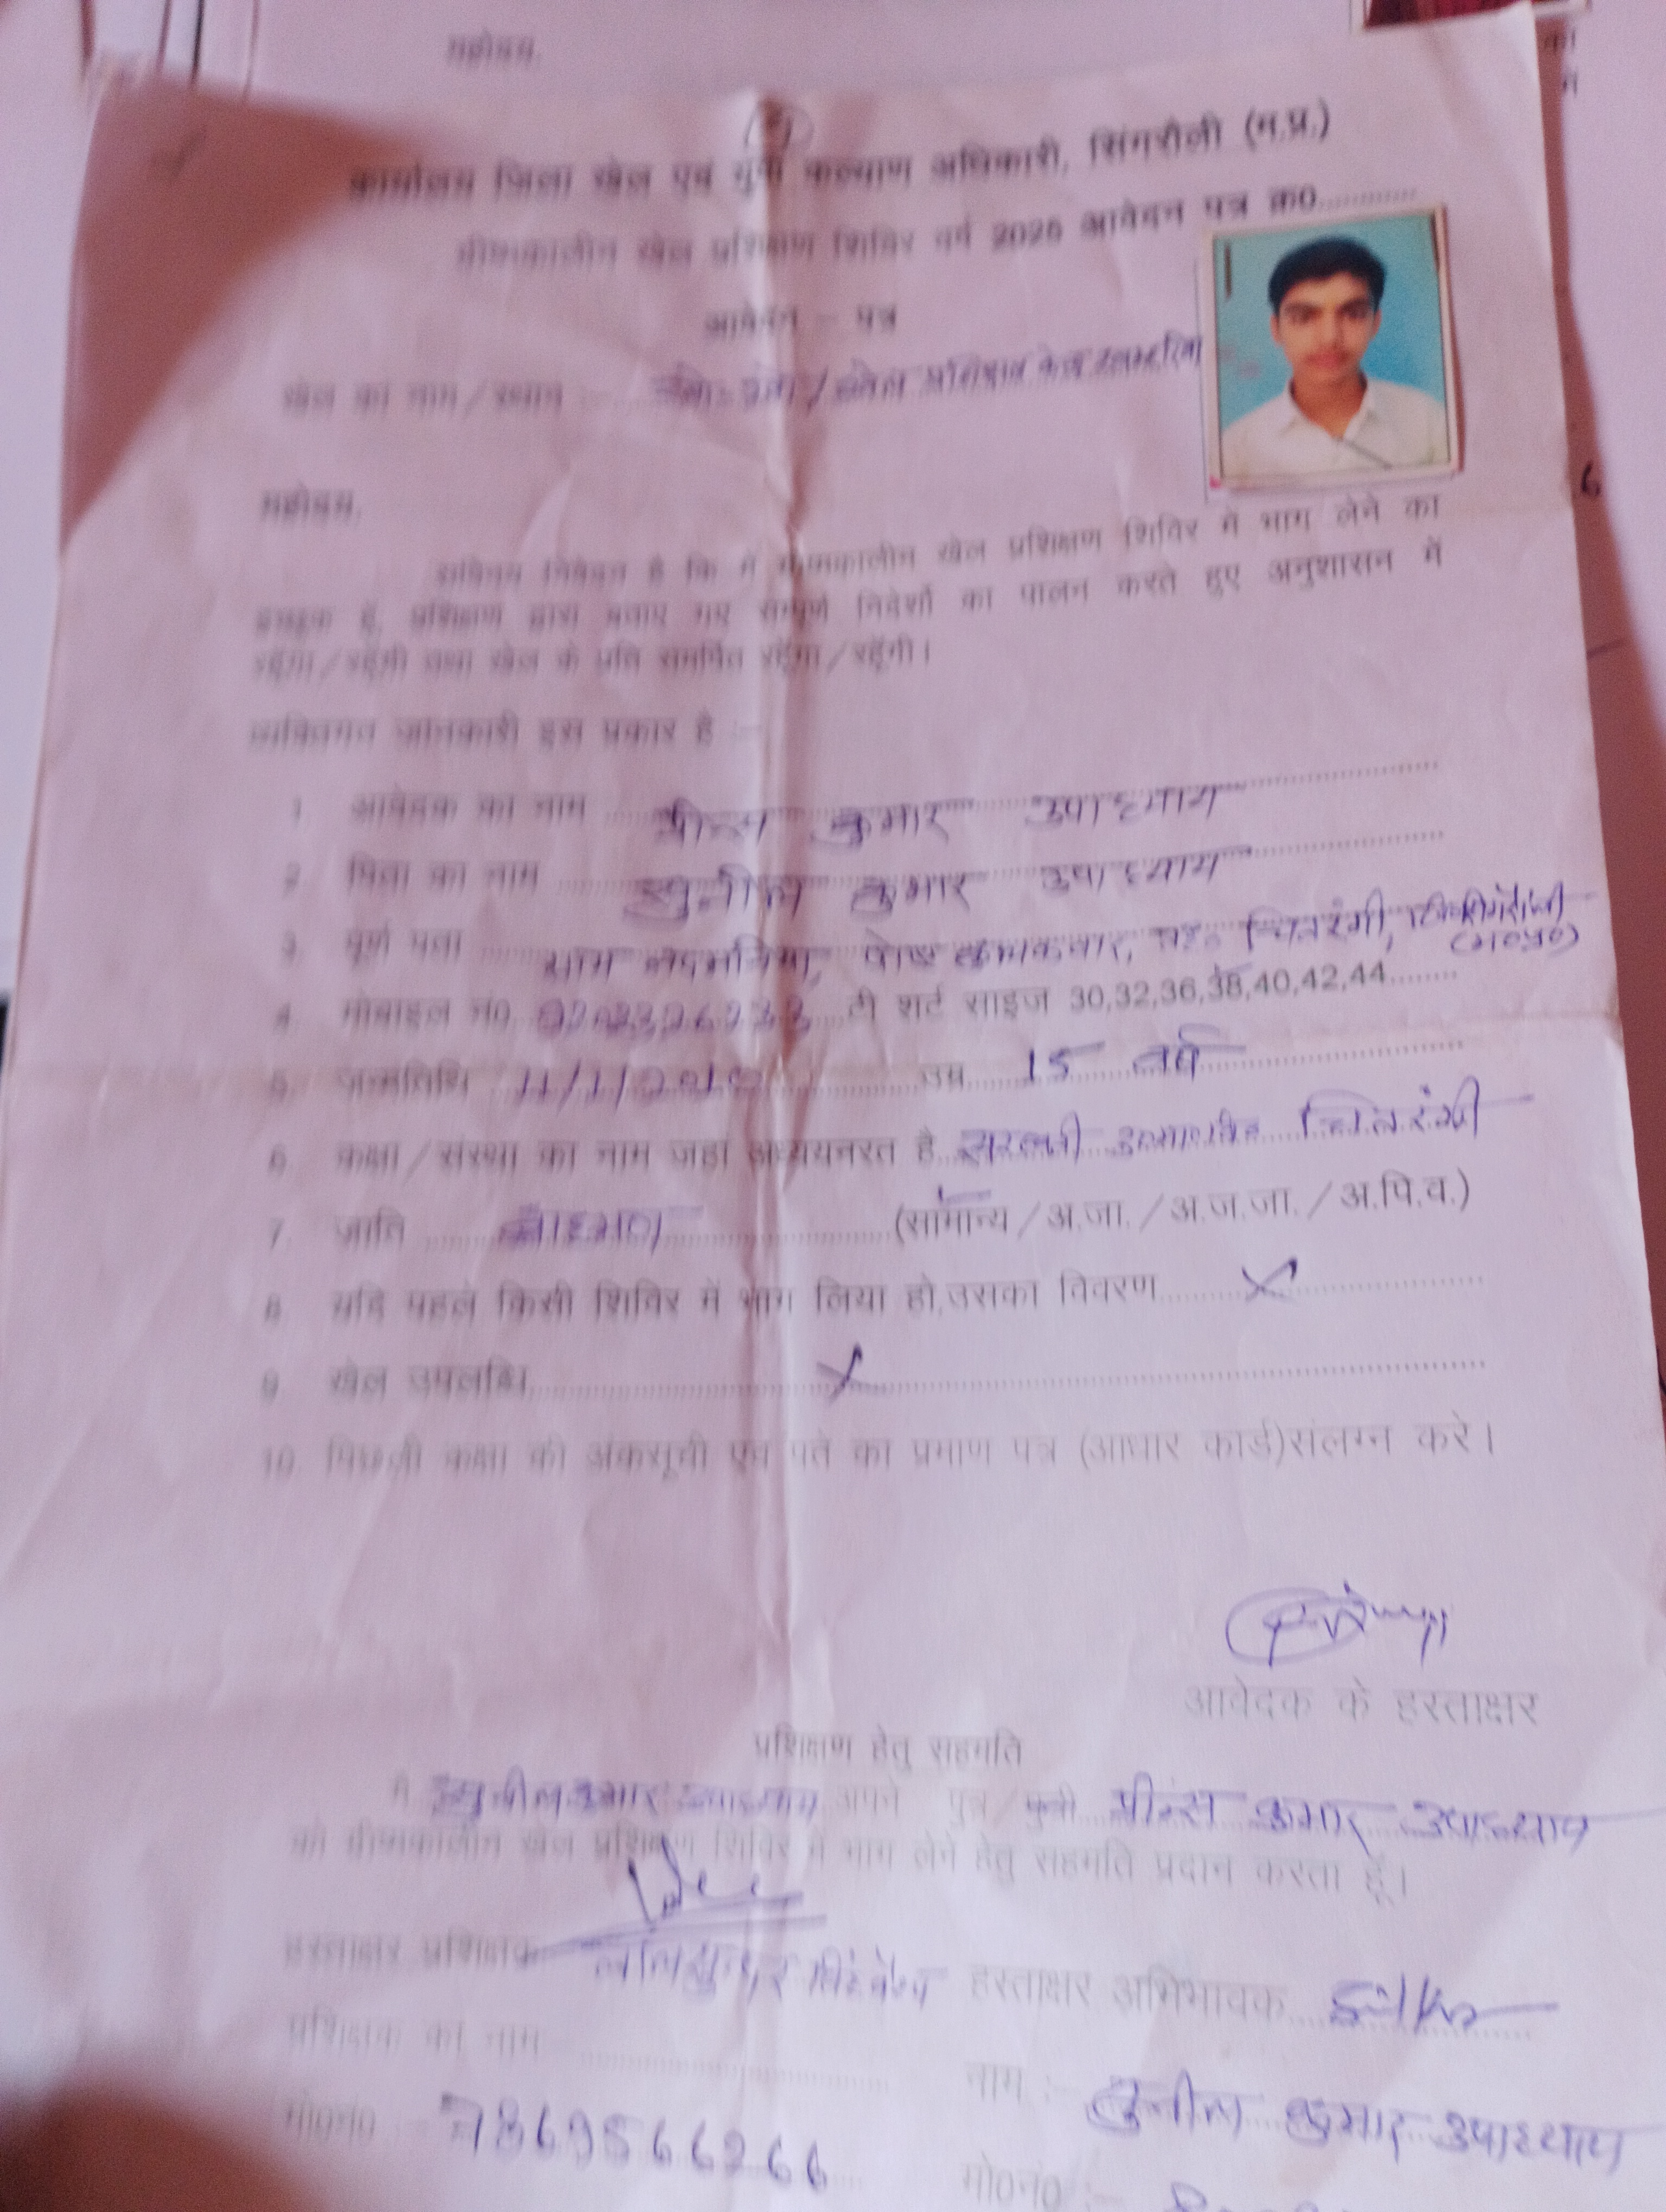 महोदय,
कार्यालय जिला खेल एवं युवा कल्याण अधिकारी, सिंगरौली (म.प्र.)
ग्रीष्मकालीन खेल प्रशिक्षण शिविर वर्ष 2025 आवेदन पत्र क्र0
आवेदन - पत्र
खेल का नाम/स्थान / खेल
महोदय,
सविनय निवेदन है कि मैं ग्रीष्मकालीन खेल प्रशिक्षण शिविर में भाग लेने का
इच्छुक हूँ, प्रशिक्षण द्वारा बताए गए सम्पूर्ण निर्देशों का पालन करते हुए अनुशासन में
रहूँगा/रहूँगी तथा खेल के प्रति समर्पित रहूँगा/रहूँगी।
व्यक्तिगत जानकारी इस प्रकार है :-
1. आवेदक का नाम प्रीन्स कुमार उपाध्याय
2. पिता का नाम सुनील कुमार उपाध्याय
3. पूर्ण पता ग्राम पोष्ट तह० चितरंगी, सिंगरौली
(म०प्र०)
4. मोबाइल नं0 टी शर्ट साइज 30,32,36,38,40,42,44
5. जन्मतिथि 11/1/2010 उम्र 15 वर्ष
6. कक्षा/संस्था का नाम जहां अध्ययनरत है चितरंगी
7. जाति ब्राह्मण (सामान्य/अ.जा./अ.ज.जा./अ.पि.व.)
8. यदि पहले किसी शिविर में भाग लिया हो,उसका विवरण X
9. खेल उपलब्धि X
10. पिछली कक्षा की अंकसूची एवं पते का प्रमाण पत्र (आधार कार्ड)संलग्न करे।
आवेदक के हस्ताक्षर
प्रशिक्षण हेतु सहमति
मैं सुनील कुमार उपाध्याय अपने पुत्र/पुत्री प्रीन्स कुमार उपाध्याय
को ग्रीष्मकालीन खेल प्रशिक्षण शिविर में भाग लेने हेतु सहमति प्रदान करता हूँ।
हस्ताक्षर प्रशिक्षक हस्ताक्षर अभिभावक
प्रशिक्षक का नाम
नाम :- सुनील कुमार उपाध्याय
मो0नं0 :- 7869566266
मो0नं0 :-